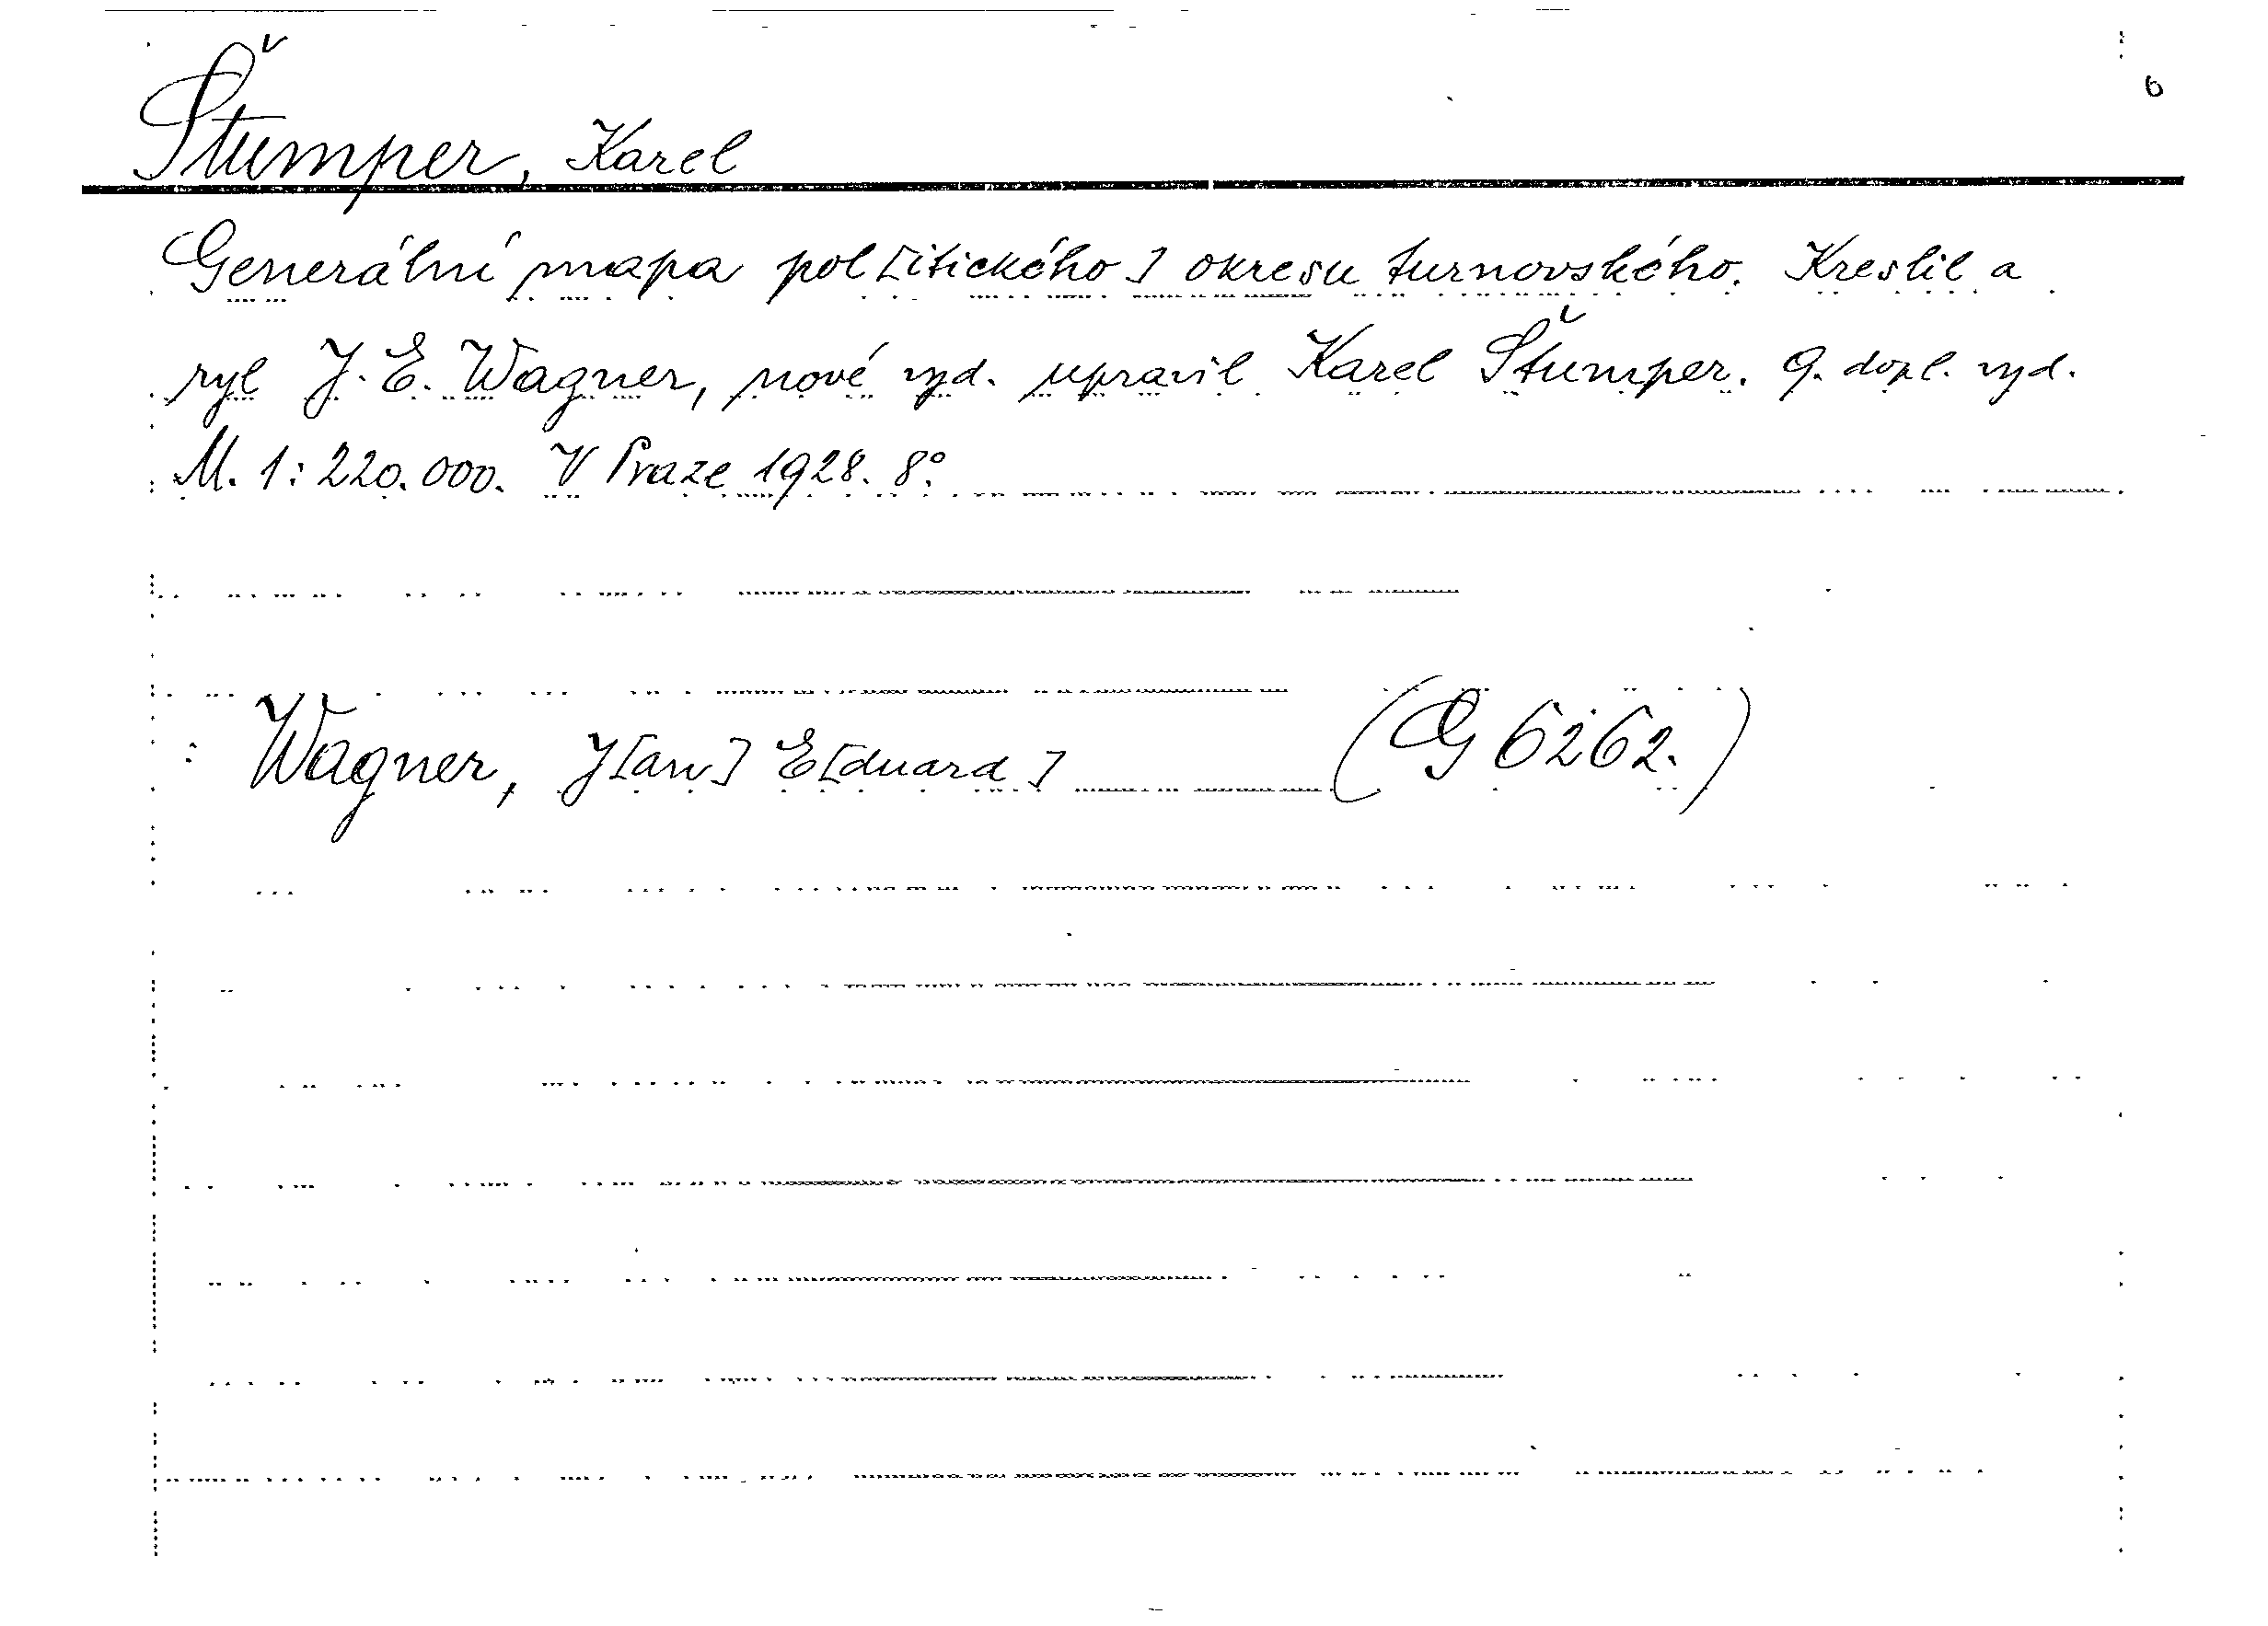 6
Štumper, Karel
Generální mapa pol[itického] okresu turnovského. Kreslil a
ryl J. E. Wagner, nové vyd. upravil Karel Štumper. 9. dopl. vyd.
M. 1:220.000. V Praze 1928. 8°.
Wagner, J[an] E[duard] (G 6262.)